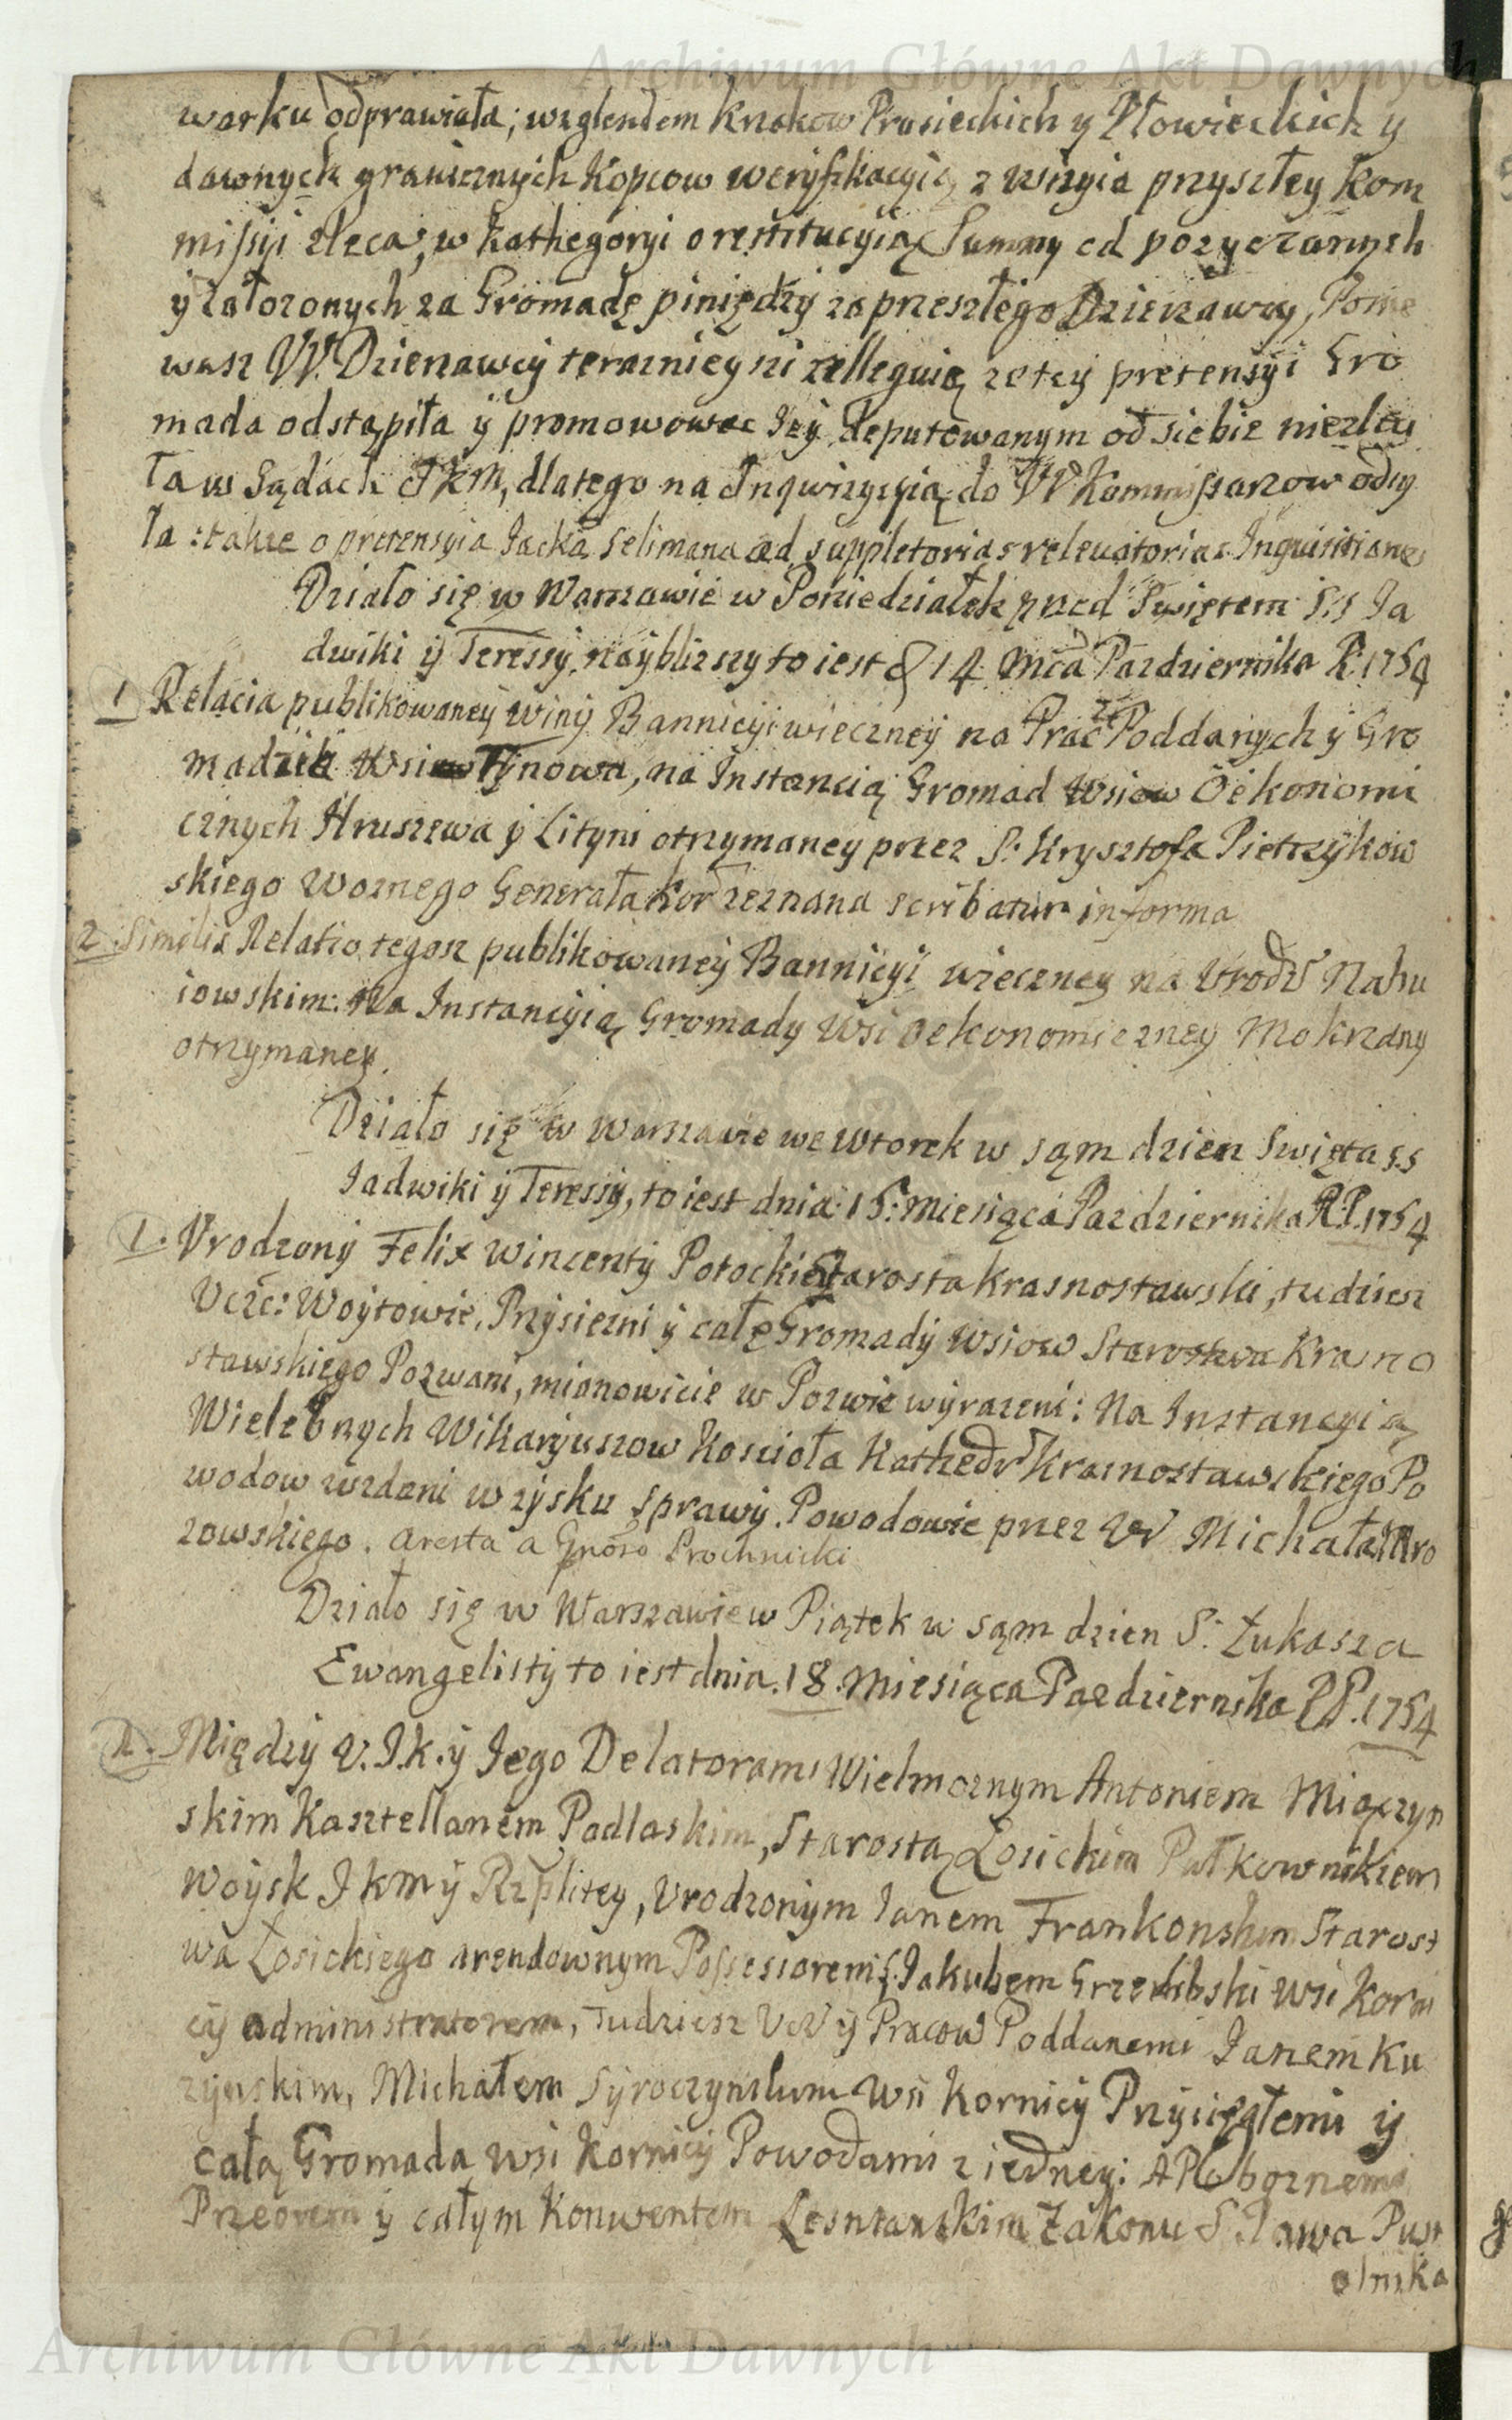 Archiwum Główne Akt Dawnych
warku odprawiała; względem Krzakow Prusieckich y Płowieckich y
dawnych granicznych Kopcow weryfikacyią z wizyią przyszłey Kom
missyi zleca; w kathegoryi o restitucyią Summy od pozyczanych
y załozonych za Gromadę piniędzy zaprzeszłego Dzierzawcy, Ponie
wasz W. Dzierzawcy teraznieyszi rellegwią ze tey pretensyi Gro
mada odstąpiła ÿ promowowac Iey deputowanym od siebie niezlecy
ła w Sądach JKM, dlatego na Inqwizycyią do W Kommissarzow odsy
ła: także o pretensyia Jacka Selimana ad suppletorias relevatorias Inquisitiones
Działo się w Warszawie w Poniedziałek przed Swiętem SS Ja
dwiki ÿ Teressÿ naÿblizszy to iest d 14 Mca Pazdziernika R. 1754
1 Relacia publikowaneÿ winÿ Bannicÿi wieczneÿ na Prac Poddanych ÿ Gro
madzie Wsi Tÿnowa, na Instancią Gromad Wsiow Oekonomi
cznych Hruszewa ÿ Lityni otrzymaney przez S: Krysztofa Pietrzykow
skiego Woznego Generała Kor zeznana scribatur in forma
2 Similis Relatio tegosz publikowaneÿ Bannicyi wieczney na Urodz Nahu
iowskim: Na Instancyią Gromady Wsi Oekonomiczney Mokrzany
otrzymaney.
Działo się w Warszawie we Wtorek w sąm dzien Swięta SS
Jadwiki ÿ Teressÿ, to iest dnia 15: Miesiąca Pazdziernika R.P. 1754
1. Urodzonÿ Felix Wincentÿ Potocki Starosta Krasnostawski, tudziesz
Uczc: Woÿtowie, Przÿsiezni ÿ całe Gromadÿ Wsiow Starostwa Krasno
stawskiego Pozwani, mianowicie w Pozwie wÿrazeni: Na Instancyią
Wielebnych Wikaryuszow Koscioła Kathedr Krasnostawskiego Po
wodow wzdani w zÿsku sprawÿ. Powodowie przez W Michała Mro
zowskiego. Aresta a Groso Prochnicki
Działo się w Warszawie w Piątek w sąm dzien S: Łukasza
Ewangelistÿ to iest dnia. 18. Miesiąca Pazdziernika R.P. 1754
1. Międzÿ U. I.k. ÿ Jego Delatorami Wielmoznym Antoniem Miączyn
skim Kasztellanem Podlaskim, Starostą Łosickim Pułkownikiem
Woÿsk JKM ÿ Rzplitey, Urodzonÿm Janem Frankonskim Starost
wa Łosickiego arendownym Possessorem S. Jakubem Grzembski Wsi Korni
cÿ administratorem, Tudziesz Ucz ÿ Pracow Poddanemi Janem Ku
zynskim, Michałem Sÿroczynskim Wsi Kornicÿ Przÿsięgłemi ÿ
całą Gromada Wsi Kornicÿ Powodami z iedney: A Poboznemi
Przeorem ÿ całym Konwentem Lesnianskim Zakonu S. Pawa Pust
olnika
Archiwum Główne Akt Dawnych